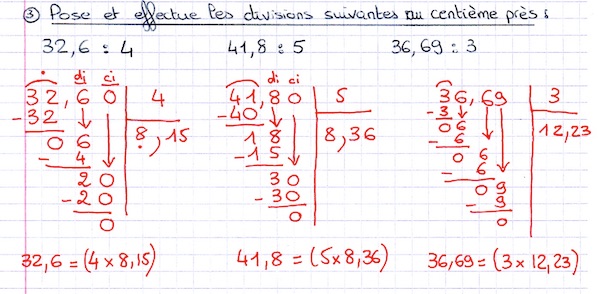 ③ Pose et effectue les divisions suivantes au centième près :
32,6 : 4   41,8 : 5   36,69 : 3
di ci   di ci
32,60 | 4   41,80 | 5   36,69 | 3
-32 | 8,15   -40 | 8,36   -3 | 12,23
06   18   06
-4   -15   -6
20   30   06
-20   -30   -6
0   0   09
-9
0
32,6 = (4 x 8,15)   41,8 = (5 x 8,36)   36,69 = (3 x 12,23)